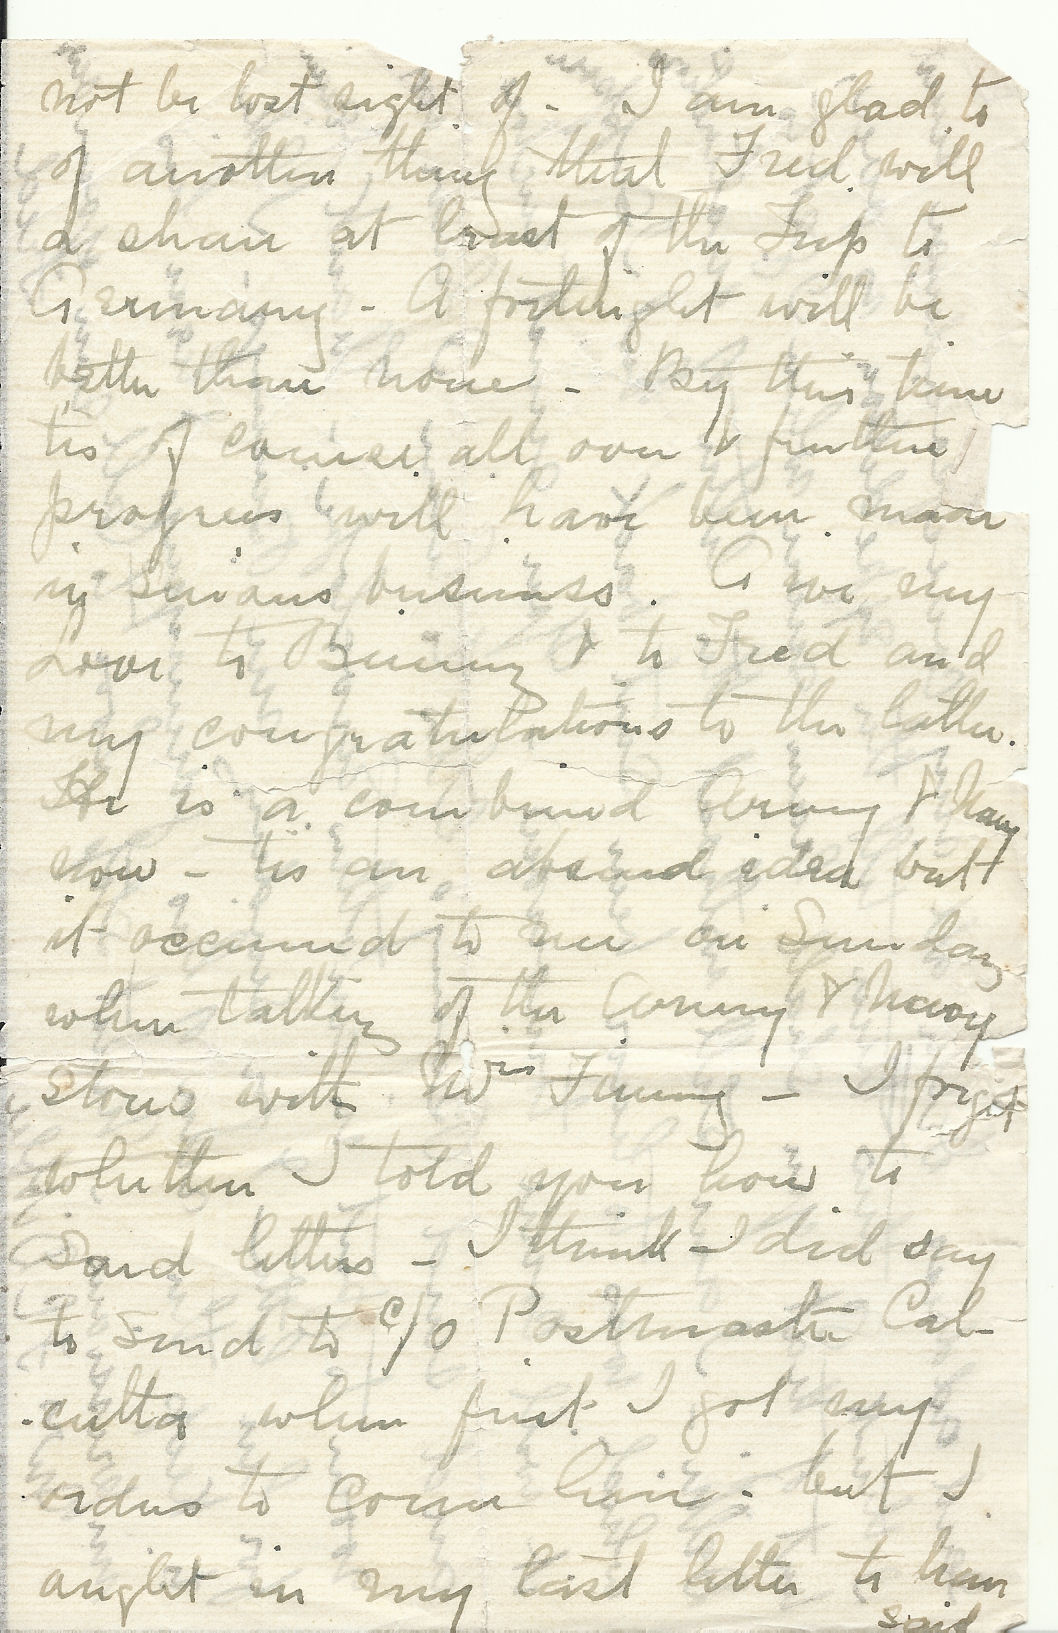 not be lost sight of - I am glad to
of another thing that Fred will
a share at least of the Trip to
Germany - A fortnight will be
better than none - By this time
tis of course all over & further
progress will have been made
in serious business. Give my
Love to Bunny & to Fred and
my congratulations to the latter.
He is a combined Army & Navy
now - tis an absurd idea but
it occurred to me on Sunday
when talking of the Army & Navy
stores with Mrs - I forget
whether I told you how to
Send letters - I think I did say
to send to c/o Postmaster Cal-
cutta when first I got my
orders to come here - but I
ought in my last letter to have
said